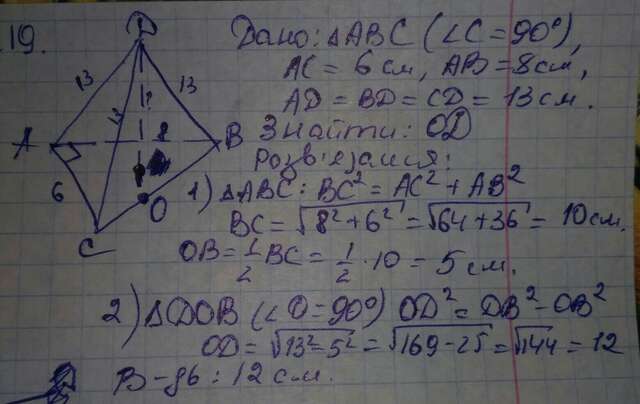 19.
D
13
13
13
?
A
8
B
6
O
C
Дано: ΔABC (∠C = 90°),
AC = 6 см, AB = 8 см,
AD = BD = CD = 13 см.
Знайти: OD
Розв'язання:
1) ΔABC: BC² = AC² + AB²
BC = √8² + 6² = √64 + 36 = 10 см.
OB = 1/2 BC = 1/2 · 10 = 5 см.
2) ΔDOB (∠O = 90°) OD² = DB² - OB²
OD = √13² - 5² = √169 - 25 = √144 = 12
В-дь: 12 см.